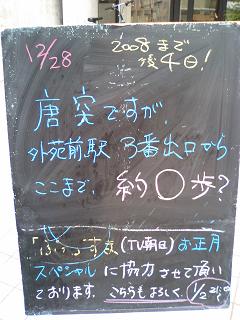 12/28
2008まで
後4日!
唐突ですが、
外苑前駅 3番出口から
ここまで、約〇歩?
(TV朝日) お正月
スペシャルに協力させて頂い
ております。こちらもよろしく。
1/2